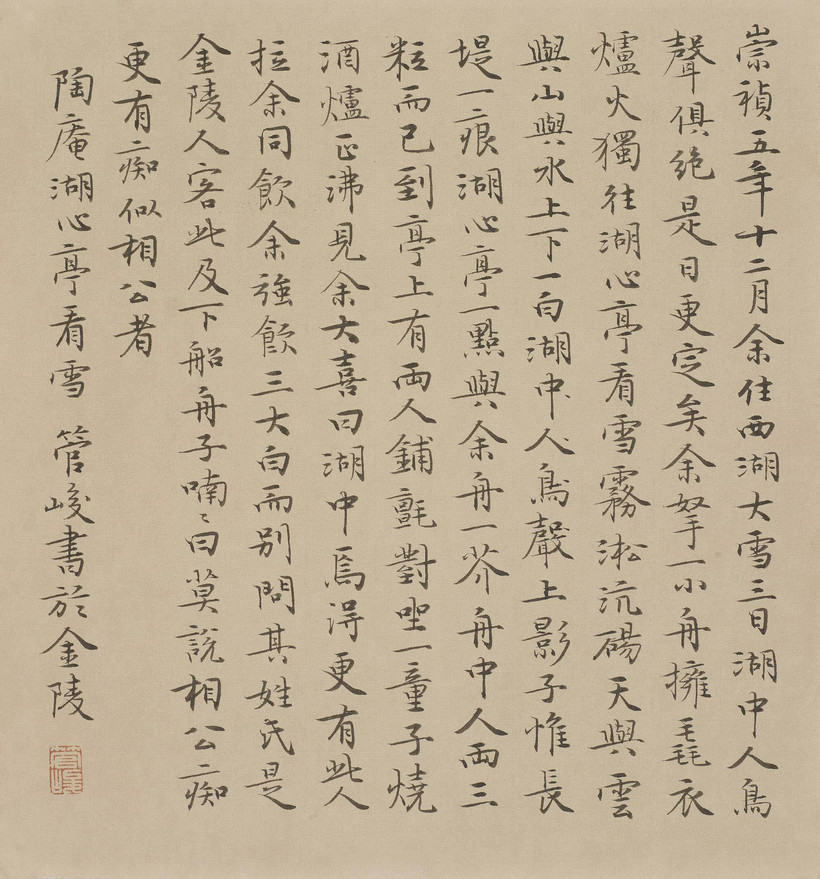 崇禎五年十二月余住西湖大雪三日湖中人鳥
聲俱絶是日更定矣余拏一小舟擁毳衣
爐火獨往湖心亭看雪霧淞沆碭天與雲
與山與水上下一白湖中人鳥聲上影子惟長
堤一痕湖心亭一點與余舟一芥舟中人兩三
粒而已到亭上有兩人鋪氈對坐一童子燒
酒爐正沸見余大喜曰湖中焉得更有此人
拉余同飲余強飲三大白而別問其姓氏是
金陵人客此及下船舟子喃〻曰莫說相公痴
更有痴似相公者
陶庵湖心亭看雪 管峻書於金陵
管峻